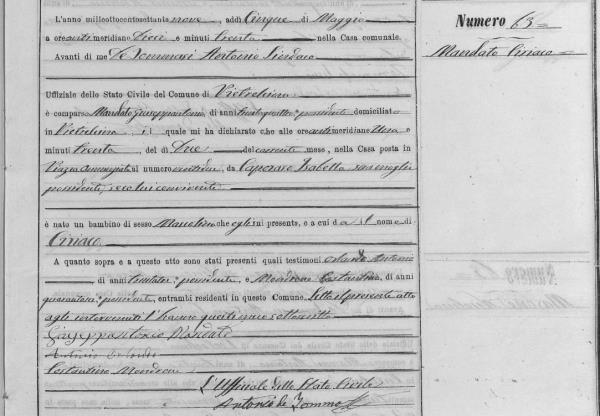 L'anno milleottocentosettanta nove, addì Cinque di Maggio
a ore anti meridiane dieci e minuti trenta nella Casa comunale.
Avanti di me De Tommasi Antonio Sindaco
Uffiziale dello Stato Civile del Comune di Pietrelcina
è comparso Mandato Giuseppantonio, di anni trentaquattro possidente domiciliato
in Pietrelcina il quale mi ha dichiarato che alle ore anti meridiane Una e
minuti trenta, del dì Due del corrente mese, nella Casa posta in
Piazza Annunziata al numero, da Caporaso Isabella sua moglie
possidente, seco lui convivente
è nato un bambino di sesso Mascolino che egli mi presenta, e a cui dà il nome di
Ciriaco
A quanto sopra e a questo atto sono stati presenti quali testimoni Orlando Antonio
di anni possidente, e Mondrone Costantino, di anni
quaranta possidente, entrambi residenti in questo Comune. Letto il presente atto
agli intervenuti l'hanno questi meco sottoscritto
Giuseppantonio Mandato
Antonio Orlando
Costantino Mondrone
L'Uffiziale dello Stato Civile
Antonio de Tommasi
Numero 63
Mandato Ciriaco